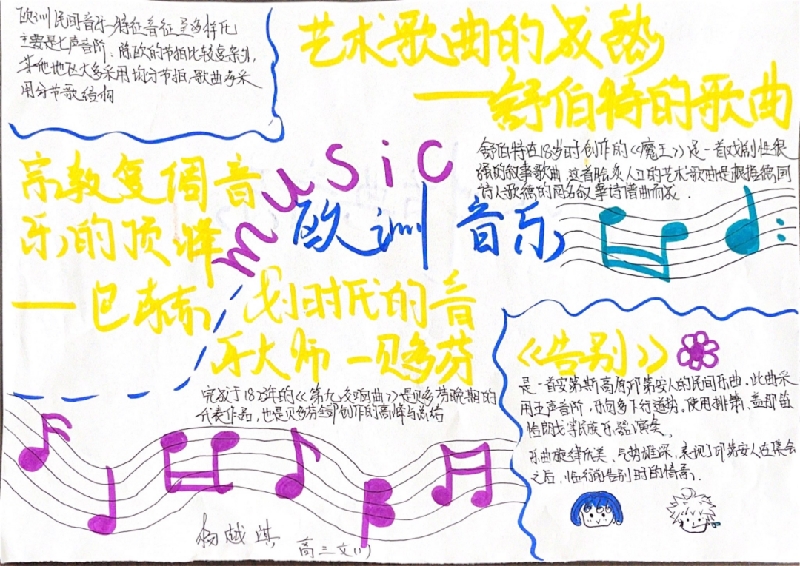 欧洲民间音乐特征音征是多样化
主要是七声音阶。东欧的节拍比较复杂,
其他地区大多采用均分节拍,歌曲多采
用分节歌结构
艺术歌曲的成熟
——舒伯特的歌曲
舒伯特在18岁时创作的《魔王》是一首戏剧性很
强的叙事歌曲,这首脍炙人口的艺术歌曲是根据德国
诗人歌德的同名叙事诗谱曲而成.
music
欧洲 音乐
宗教复调音
乐的顶峰
——巴赫
划时代的音
乐大师—贝多芬
完成于1824年的《第九交响曲》是贝多芬晚期的
代表作品,也是贝多芬全部创作的高峰与总结
《告别》
是一首安第斯高原印第安人的民间乐曲,此曲采
用五声音阶,
使用排箫、盖那笛
恰朗戈等民族乐器演奏.
乐曲旋律优美,气势雄深,表现了印第安人在聚会
之后,临行的告别时的情景.
杨越琪 高二文(1)